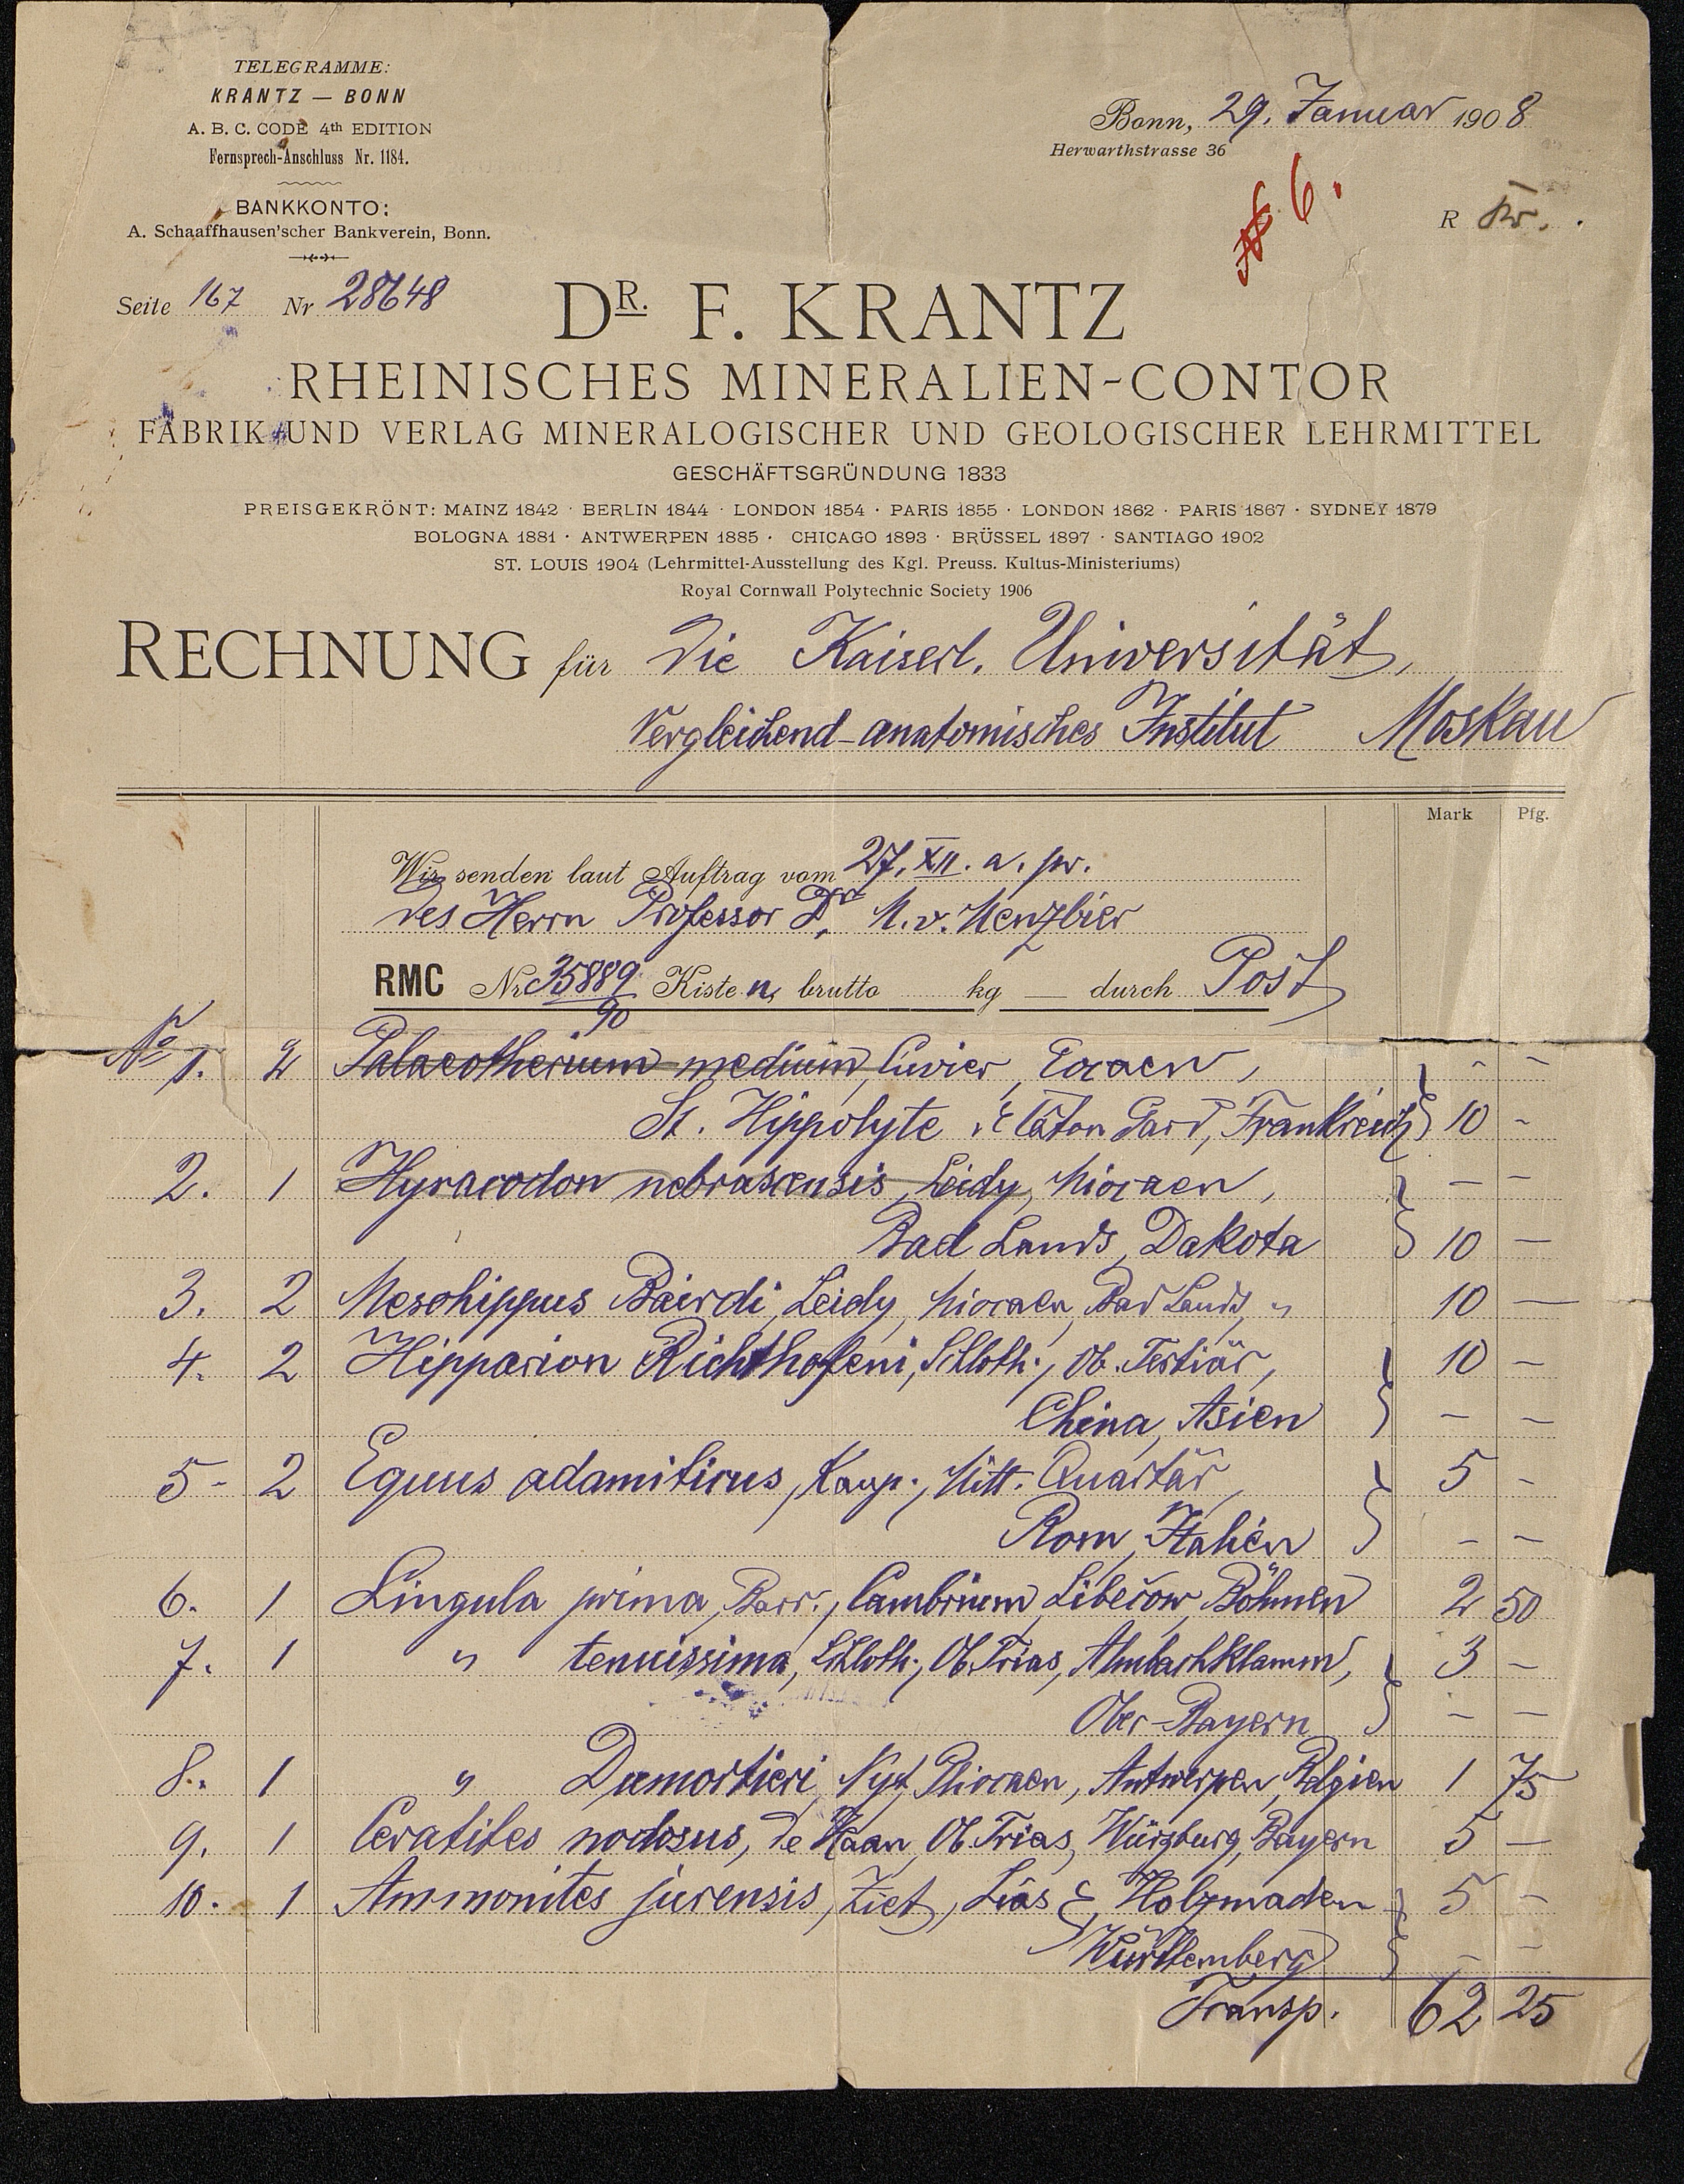 TELEGRAMME:
KRANTZ — BONN
A. B. C. CODE 4th EDITION
Fernsprech-Anschluss Nr. 1184.
BANKKONTO:
A. Schaaffhausen'scher Bankverein, Bonn.
Seite 167 Nr 28648
Bonn, 29. Januar 1908
Herwarthstrasse 36
№ 6.
R
DR. F. KRANTZ
RHEINISCHES MINERALIEN-CONTOR
FABRIK UND VERLAG MINERALOGISCHER UND GEOLOGISCHER LEHRMITTEL
GESCHÄFTSGRÜNDUNG 1833
PREISGEKRÖNT: MAINZ 1842 · BERLIN 1844 · LONDON 1854 · PARIS 1855 · LONDON 1862 · PARIS 1867 · SYDNEY 1879
BOLOGNA 1881 · ANTWERPEN 1885 · CHICAGO 1893 · BRÜSSEL 1897 · SANTIAGO 1902
ST. LOUIS 1904 (Lehrmittel-Ausstellung des Kgl. Preuss. Kultus-Ministeriums)
Royal Cornwall Polytechnic Society 1906
RECHNUNG für die Kaiserl. Universität,
Vergleichend-anatomisches Institut Moskau
Mark Pfg.
Wir senden laut Auftrag vom 27. XII. a. pr.
des Herrn Professor Dr. M. v. Menzbier
RMC Nr. 35889/90 Kisten, brutto kg — durch Post
№ 1. 2 Palaeotherium medium, Cuvier, Eocaen, - -
St. Hippolyte de Caton Gard, Frankreich 10 -
2. 1 Hyracodon nebrascensis, Leidy, Miocaen, — —
Bad Lands, Dakota 10 —
3. 2 Mesohippus Bairdi, Leidy, Miocaen, Bad Lands, " 10 —
4. 2 Hipparion Richthofeni, Schloth., Ob. Tertiär, 10 -
China, Asien - -
5- 2 Equus adamiticus, Kaup., Mitt. Quartär, 5 -
Rom, Italien - -
6. 1 Lingula prima, Barr., Cambrium, Libečow, Böhmen 2 50
7. 1 " tenuissima, Schloth., Ob. Trias, Almbachklamm, 3 -
Ober-Bayern - -
8. 1 " Dumortieri, Nyst, Pliocaen, Antwerpen, Belgien 1 75
9. 1 Ceratites nodosus, de Haan, Ob. Trias, Würzburg, Bayern 5 —
10. 1 Ammonites jurensis, Ziet, Lias ξ, Holzmaden 5 -
Württemberg - -
Transp. 62 25